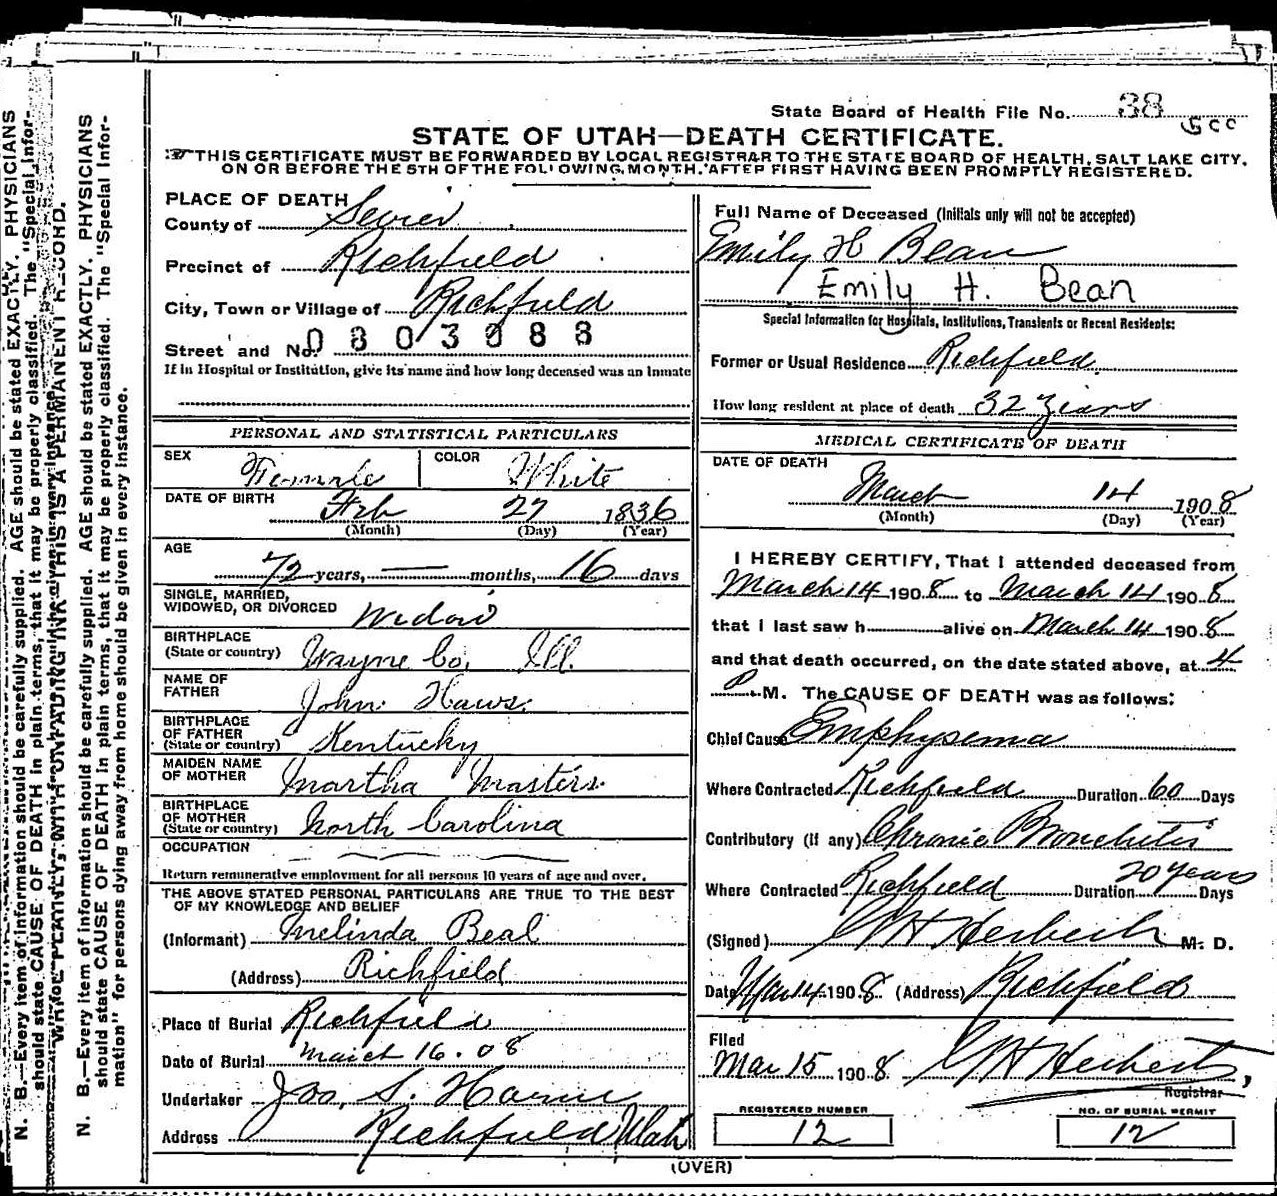 State Board of Health File No. 38
STATE OF UTAH—DEATH CERTIFICATE.
THIS CERTIFICATE MUST BE FORWARDED BY LOCAL REGISTRAR TO THE STATE BOARD OF HEALTH, SALT LAKE CITY,
ON OR BEFORE THE 5TH OF THE FOLLOWING MONTH, AFTER FIRST HAVING BEEN PROMPTLY REGISTERED.
PLACE OF DEATH
County of Sevier
Precinct of Richfield
City, Town or Village of Richfield
Street and No. 0303088
If in Hospital or Institution, give its name and how long deceased was an inmate
PERSONAL AND STATISTICAL PARTICULARS
SEX Female COLOR White
DATE OF BIRTH Feb 27 1836
(Month) (Day) (Year)
AGE
72 years, — months, 16 days
SINGLE, MARRIED,
WIDOWED, OR DIVORCED Widow
BIRTHPLACE
(State or country) Wayne Co, Ill.
NAME OF
FATHER John Haws
BIRTHPLACE
OF FATHER
(State or country) Kentucky
MAIDEN NAME
OF MOTHER Martha Masters
BIRTHPLACE
OF MOTHER
(State or country) North Carolina
OCCUPATION
Return remunerative employment for all persons 10 years of age and over.
THE ABOVE STATED PERSONAL PARTICULARS ARE TRUE TO THE BEST
OF MY KNOWLEDGE AND BELIEF
(Informant) Melinda Beal
(Address) Richfield
Place of Burial Richfield
Date of Burial March 16. 08
Undertaker Jos. S. Horne
Address Richfield Utah
Full Name of Deceased (Initials only will not be accepted)
Emily H Bean
Emily H. Bean
Special Information for Hospitals, Institutions, Transients or Recent Residents:
Former or Usual Residence Richfield.
How long resident at place of death 32 years
MEDICAL CERTIFICATE OF DEATH
DATE OF DEATH
March 14 1908
(Month) (Day) (Year)
I HEREBY CERTIFY, That I attended deceased from
March 14 1908 to March 14 1908
that I last saw h alive on March 14 1908
and that death occurred, on the date stated above, at 4
P.M. The CAUSE OF DEATH was as follows:
Chief Cause Emphysema
Where Contracted Richfield Duration 60 Days
Contributory (if any) Chronic Bronchitis
Where Contracted Richfield Duration 20 years Days
(Signed) M. D.
Date Mar 14 1908 (Address) Richfield
Filed
Mar 15 1908
Registrar
REGISTERED NUMBER
12
NO. OF BURIAL PERMIT
12
(OVER)
N. B.—Every item of information should be carefully supplied. AGE should be stated EXACTLY. PHYSICIANS
should state CAUSE OF DEATH in plain terms, that it may be properly classified. The "Special Infor-
WRITE PLAINLY, WITH UNFADING INK—THIS IS A PERMANENT RECORD.
N. B.—Every item of information should be carefully supplied. AGE should be stated EXACTLY. PHYSICIANS
should state CAUSE OF DEATH in plain terms, that it may be properly classified. The "Special Infor-
mation" for persons dying away from home should be given in every instance.